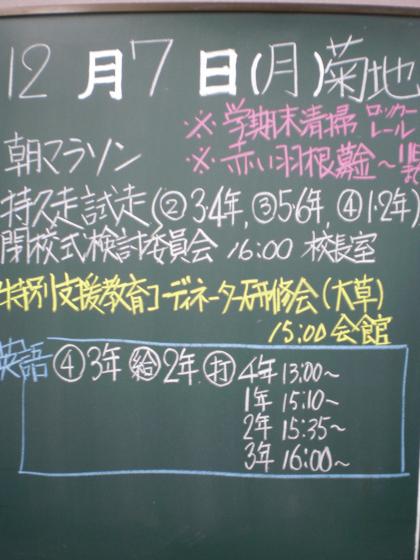 12月7日(月)菊地
※学期末清掃 ロッカーレール
朝マラソン
※赤い羽根募金~11日まで
持久走試走(②3・4年,③5・6年,④1・2年)
閉校式検討委員会 16:00 校長室
特別支援教育コーディネーター研修会(大草)
15:00 会館
英語 ④3年 給2年 打 4年 13:00~
1年 15:10~
2年 15:35~
3年 16:00~